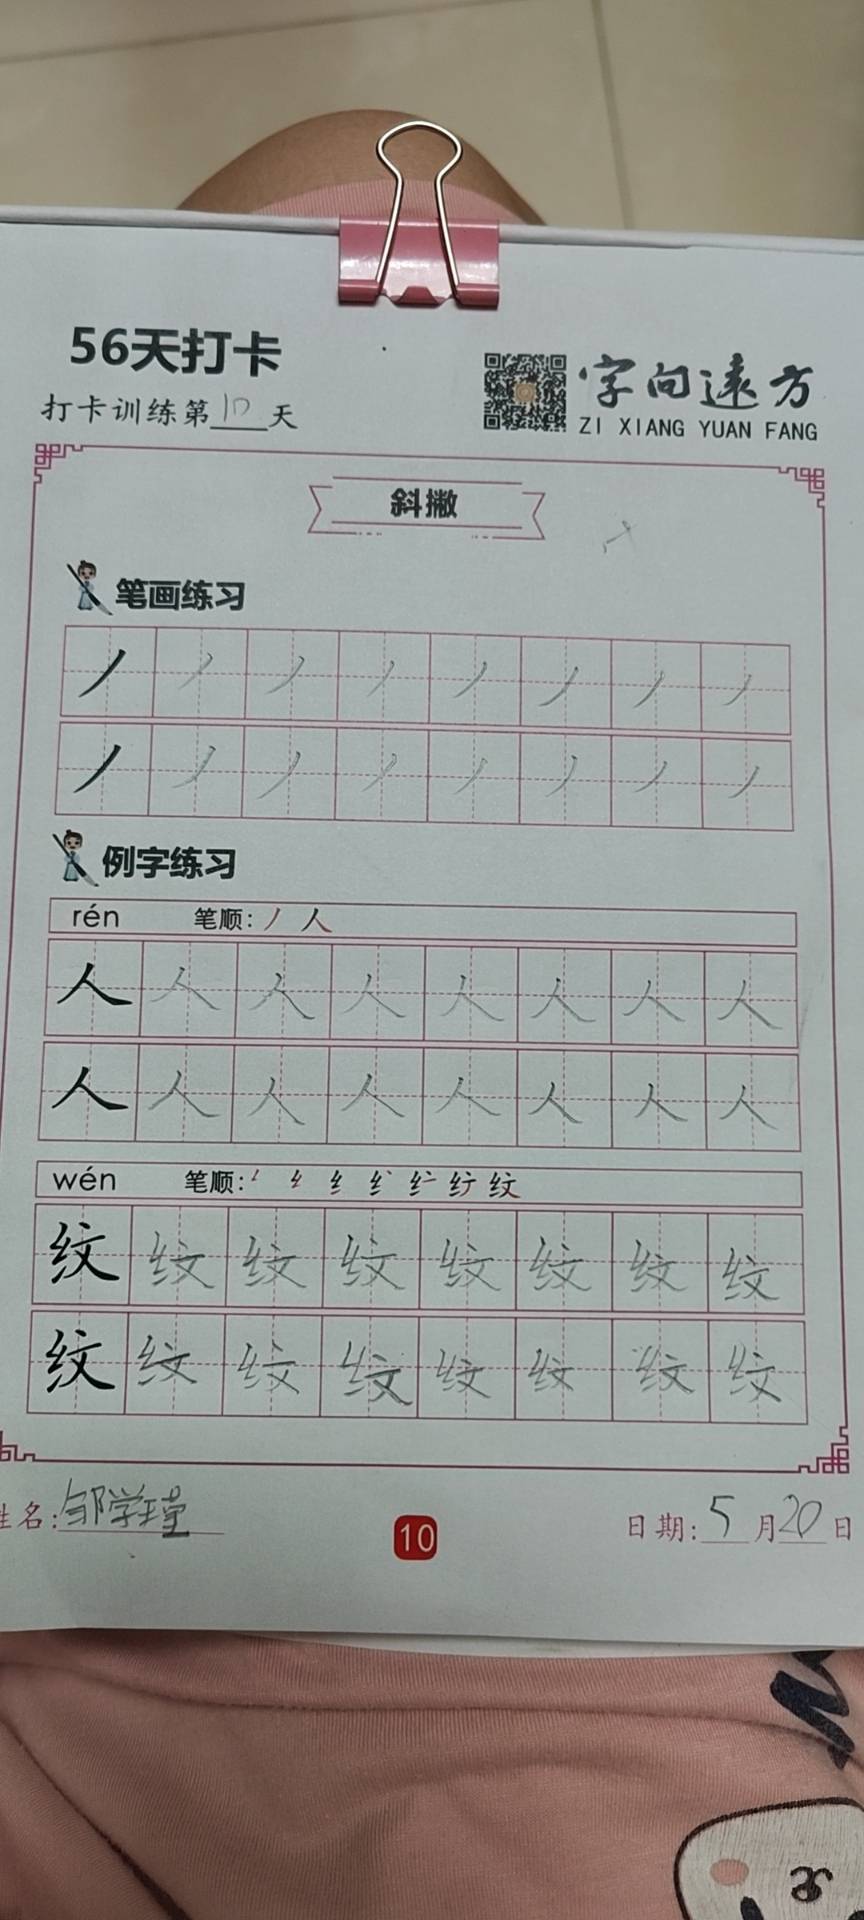 56天打卡
打卡训练第10天
字向远方
ZI XIANG YUAN FANG
斜撇
笔画练习
丿丿丿丿丿丿丿丿
丿丿丿丿丿丿丿丿
例字练习
rén 笔顺:丿人
人人人人人人人人
人人人人人人人人
wén 笔顺:
纹纹纹纹纹纹纹纹
纹纹纹纹纹纹纹纹
姓名:邹学瑾
10
日期:5月20日